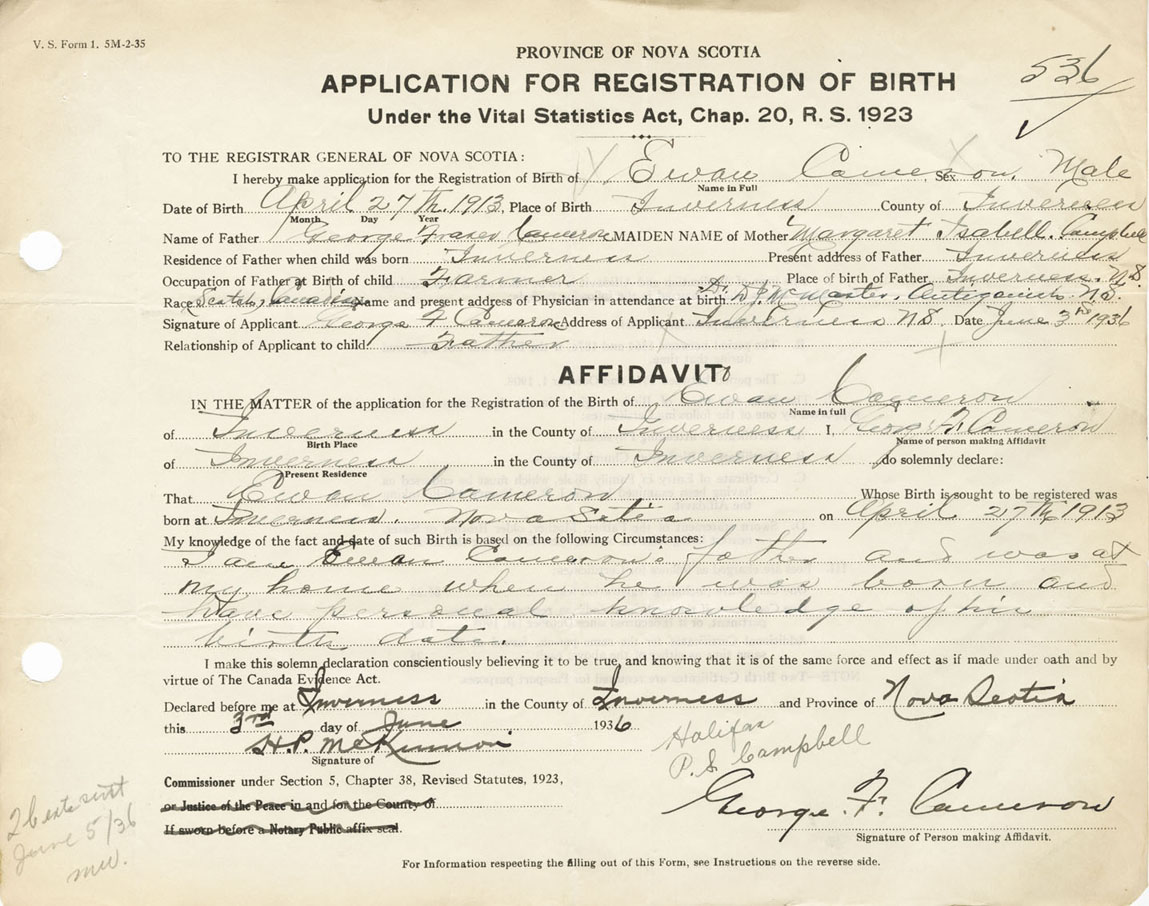 V. S. Form 1. 5M-2-35
PROVINCE OF NOVA SCOTIA
536
APPLICATION FOR REGISTRATION OF BIRTH
Under the Vital Statistics Act, Chap. 20, R. S. 1923
TO THE REGISTRAR GENERAL OF NOVA SCOTIA:
I hereby make application for the Registration of Birth of Ewan Cameron. Sex Male
Name in Full
Date of Birth April 27th 1913, Place of Birth Inverness County of Inverness
Month Day Year
Name of Father George Fraser Cameron MAIDEN NAME of Mother Margaret Isabell Campbell
Residence of Father when child was born Inverness Present address of Father Inverness
Occupation of Father at Birth of child Farmer Place of birth of Father Inverness. N.S.
Race Scotch, Canadian Name and present address of Physician in attendance at birth Dr. D.J. McMaster, Antigonish N.S.
Signature of Applicant George F Cameron Address of Applicant Inverness NS. Date June 3rd 1936
Relationship of Applicant to child Father
AFFIDAVIT
IN THE MATTER of the application for the Registration of the Birth of Ewan Cameron
Name in full
of Inverness in the County of Inverness I, George F. Cameron
Birth Place Name of person making Affidavit
of Inverness in the County of Inverness do solemnly declare:
Present Residence
That Ewan Cameron Whose Birth is sought to be registered was
born at Inverness. Nova Scotia on April 27th 1913
My knowledge of the fact and date of such Birth is based on the following Circumstances:
I am Ewan Cameron's father and was at
my home when he was born and
have personal knowledge of his
birth date.
I make this solemn declaration conscientiously believing it to be true, and knowing that it is of the same force and effect as if made under oath and by
virtue of The Canada Evidence Act.
Declared before me at Inverness in the County of Inverness and Province of Nova Scotia
this 3rd day of June 1936
H.P. McKinnon
Signature of
Halifax
P.S. Campbell
Commissioner under Section 5, Chapter 38, Revised Statutes, 1923,
or Justice of the Peace in and for the County of
If sworn before a Notary Public affix seal.
George. F. Cameron
Signature of Person making Affidavit.
2 certs sent
June 5/36
mw.
For Information respecting the filling out of this Form, see Instructions on the reverse side.